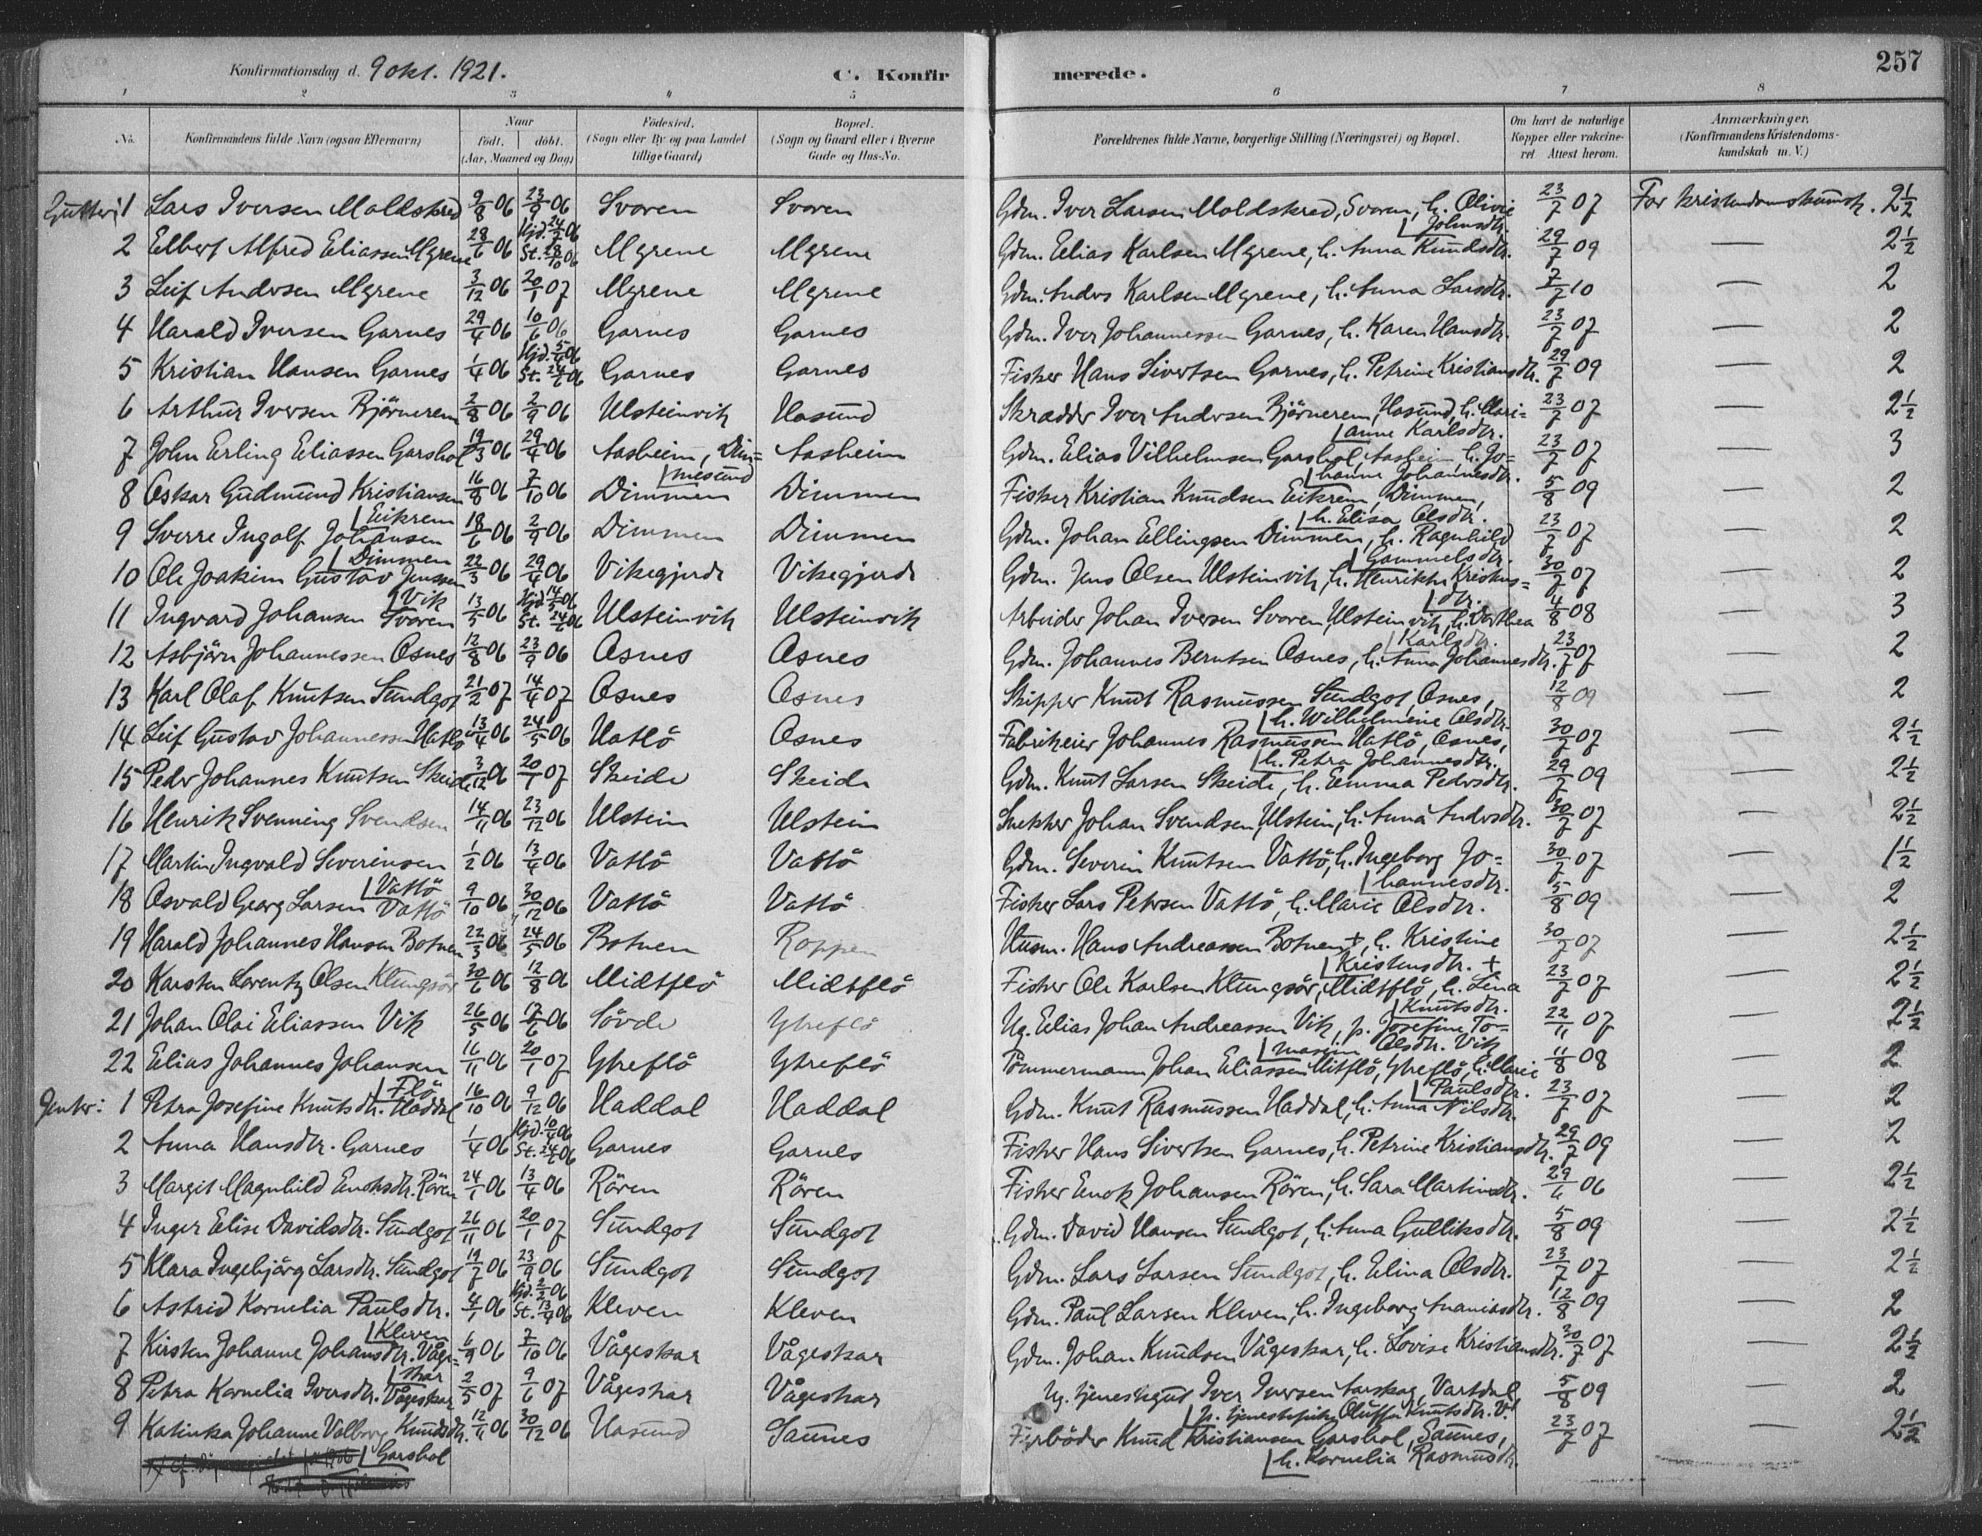 Konfirmationsdag d. 9 okt. 1921.
C. Konfirmerede.
257
1 2 3 4 5 6 7 8
No. Konfirmandens fulde Navn (ogsaa Efternavn) Naar født. døbt. (Aar, Maaned og Dag) Fødested. (Sogn eller By og paa Landet tillige Gaard) Bopæl. (Sogn og Gaard eller i Byerne Gade og Hus-No. Forældrenes fulde Navne, borgerlige Stilling (Næringsvei) og Bopæl. Om havt de naturlige Kopper eller vakcineret Attest herom. Anmærkninger. (Konfirmandens Kristendomskundskab m. V.)
Gutter: 1 Lars Iversen Moldskred 9/8 06 23/9 06 Svoren Svoren Gdm. Iver Larsen Moldskred, Svoren, h. Olivie Johnsdtr. 23/7 07 For kristendomskunsk. 2½
2 Elbert Alfred Eliassen Myrene 28/6 06 Hjd. St. 28/10 06 Myrene Myrene Gdm. Elias Karlsen Myrene, h. Anna Knudsdtr. 29/7 09 — 2½
3 Leif Andersen Myrene 3/12 06 20/1 07 Myrene Myrene Gdm. Anders Karlsen Myrene, h. Anna Larsdtr. 7/7 10 — 2
4 Harald Iversen Garnes 29/4 06 10/6 06 Garnes Garnes Gdm. Iver Johannessen Garnes, h. Karen Hansdtr. 23/7 07 — 2
5 Kristian Hansen Garnes 1/4 06 Hjd. 5/4 06 St. 24/6 06 Garnes Garnes Fisker Hans Sivertsen Garnes, h. Petrine Kristiansdtr. 29/7 09 — 2
6 Arthur Iversen Bjørnerem 2/8 06 2/9 06 Ulsteinvik Hasund Skrædder Iver Andersen Bjørnerem, Hasund, h. Marianne Karlsdtr. 23/7 07 — 2½
7 John Erling Eliassen Garshol 19/3 06 29/4 06 Aasheim, Dimmesund Aasheim Gdm. Elias Vilhelmsen Garshol, Aasheim, h. Johanne Johannesdtr. 23/7 07 — 3
8 Oskar Gudmund Kristiansen Eikrem 16/8 06 7/10 06 Dimmen Dimmen Fisker Kristian Knudsen Eikrem, Dimmen, h. Elisa Olsdtr. 5/8 09 — 2
9 Sverre Ingolf Johansen Dimmen 18/6 06 2/9 06 Dimmen Dimmen Gdm. Johan Ellingsen Dimmen, h. Ragnhild Gammelsdtr. 23/7 07 — 2
10 Ole Joakim Gustav Jenssen Vik 22/3 06 29/4 06 Vikegjerde Vikegjerde Gdm. Jens Olsen Ulsteinvik, h. Henrikke Kristensdtr. 30/7 07 — 2
11 Ingvard Johansen Svoren 13/5 06 Hjd. 14/5 06 St. 24/6 06 Ulsteinvik Ulsteinvik Arbeider Johan Iversen Svoren, Ulsteinvik, h. Dorthea Karlsdtr. 4/8 08 — 3
12 Asbjørn Johannessen Osnes 12/8 06 23/9 06 Osnes Osnes Gdm. Johannes Berntsen Osnes, h. Anna Johannesdtr. 23/7 07 — 2
13 Karl Olaf Knutsen Sundgot 21/2 07 14/4 07 Osnes Osnes Skipper Knut Rasmussen Sundgot, Osnes, h. Wilhelmine Olsdtr. 12/8 09 — 2
14 Leif Gustav Johannessen Hatlø 13/4 06 24/5 06 Hatlø Osnes Fabrikeier Johannes Rasmussen Hatlø, Osnes, h. Petra Johannesdtr. 30/7 07 — 2½
15 Peder Johannes Knutsen Skeide 3/12 06 20/1 07 Skeide Skeide Gdm. Knut Larsen Skeide, h. Emma Pedersdtr. 29/7 09 — 2½
16 Henrik Svenning Svendsen 14/11 06 23/12 06 Ulstein Ulstein Snekker Johan Svendsen, Ulstein, h. Anna Andersdtr. 30/7 07 — 2½
17 Martin Ingvald Severinsen Vattø 1/2 06 13/4 06 Vattø Vattø Gdm. Severin Knutsen Vattø, h. Ingeborg Johannesdtr. 30/7 07 — 1½
18 Osvald Georg Larsen Vattø 9/10 06 30/12 06 Vattø Vattø Fisker Lars Petersen Vattø, h. Marie Olsdtr. 5/8 09 — 2
19 Harald Johannes Hansen Botnen 22/3 06 24/5 06 Botnen Roppen Husm. Hans Andreassen Botnen +, h. Kristine Kristensdtr. + 30/7 07 — 2½
20 Karsten Lorentz Olsen Klungsør 30/6 06 12/8 06 Midtflø Midtflø Fisker Ole Karlsen Klungsør, Midtflø, h. Lina Knutsdtr. 23/7 07 — 2½
21 Johan Olai Eliassen Vik 26/5 06 17/6 06 Søvde Ytreflø Ug. Elias Johan Andreassen Vik, p. Josefine Tomasine Olsdtr. Vik 22/11 07 — 2½
22 Elias Johannes Johansen Flø 16/11 06 20/1 07 Ytreflø Ytreflø Tømmermann Johan Eliassen Mitflø, Ytreflø, h. Marie Paulsdtr. 11/8 08 — 2
Jenter: 1 Petra Josefine Knutsdtr. Haddal 16/10 06 9/12 06 Haddal Haddal Gdm. Knut Rasmussen Haddal, h. Anna Nilsdtr. 23/7 07 — 2
2 Anna Hansdtr. Garnes 1/4 06 Hjd. 10/4 06 St. 24/6 06 Garnes Garnes Fisker Hans Sivertsen Garnes, h. Petrine Kristiansdtr. 29/7 09 — 2
3 Margit Magnhild Enoksdtr. Røren 24/1 06 13/4 06 Røren Røren Fisker Enok Johansen Røren, h. Sara Martinsdtr. 29/6 06 — 2½
4 Inger Elise Davidsdtr. Sundgot 26/11 06 20/1 07 Sundgot Sundgot Gdm. David Hansen Sundgot, h. Anna Gulliksdtr. 5/8 09 — 2½
5 Klara Ingebjørg Larsdtr. Sundgot 19/7 06 23/9 06 Sundgot Sundgot Gdm. Lars Larsen Sundgot, h. Elina Olsdtr. 23/7 07 — 2½
6 Astrid Kornelia Paulsdtr. Kleven 4/1 06 Hjd. 2/2 06 St. 13/4 06 Kleven Kleven Gdm. Paul Larsen Kleven, h. Ingeborg Ananiasdtr. 12/8 09 — 2
7 Kirsten Johanne Johansdtr. Vågeskar 6/9 06 7/10 06 Vågeskar Vågeskar Gdm. Johan Knudsen Vågeskar, h. Lovise Kristiansdtr. 30/7 07 — 2½
8 Petra Kornelia Iversdtr. Vågeskar 2/5 07 9/6 07 Vågeskar Vågeskar Ug. tjenestegut Iver Iversen Aarskog, Vartdal, p. tjenestepike Oluffa Knutsdtr. V. 5/8 09 — 2
9 Katinka Johanne Valborg Knudsdtr. Garshol 12/11 06 30/12 06 Hasund Saunes Fyrbøder Knud Kristiansen Garshol, Saunes, h. Kornelia Rasmusdtr. 23/7 07 — 2½